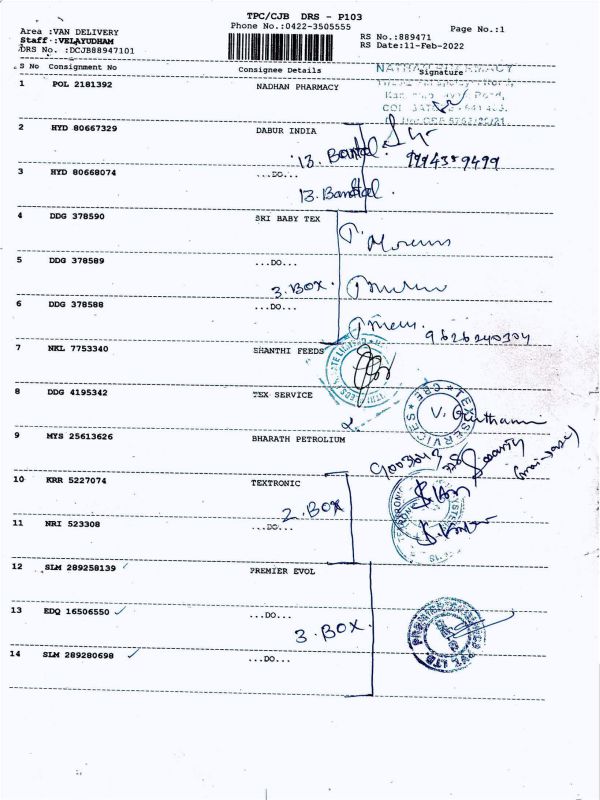 TPC/CJB DRS - P103
Phone No.:0422-3505555
Page No.:1
Area :VAN DELIVERY
Staff :VELAYUDHAM
DRS No. :DCJB88947101
RS No.:889471
RS Date:11-Feb-2022
S No Consignment No Consignee Details Signature
1 POL 2181392 NADHAN PHARMACY
2 HYD 80667329 DABUR INDIA
13. Bandal 9994359499
3 HYD 80668074 ...DO...
13. Bandal.
4 DDG 378590 SRI BABY TEX
5 DDG 378589 ...DO...
3. BOX.
6 DDG 378588 ...DO...
9626240304
7 NKL 7753340 SHANTHI FEEDS
8 DDG 4195342 TEX SERVICE
TEX SERVICES ★ CBE ★
9 MYS 25613626 BHARATH PETROLIUM
10 KRR 5227074 TEXTRONIC
2. BOX
11 NRI 523308 ...DO...
12 SLM 289258139 PREMIER EVOL
13 EDQ 16506550 ...DO...
3. BOX.
14 SLM 289280698 ...DO...